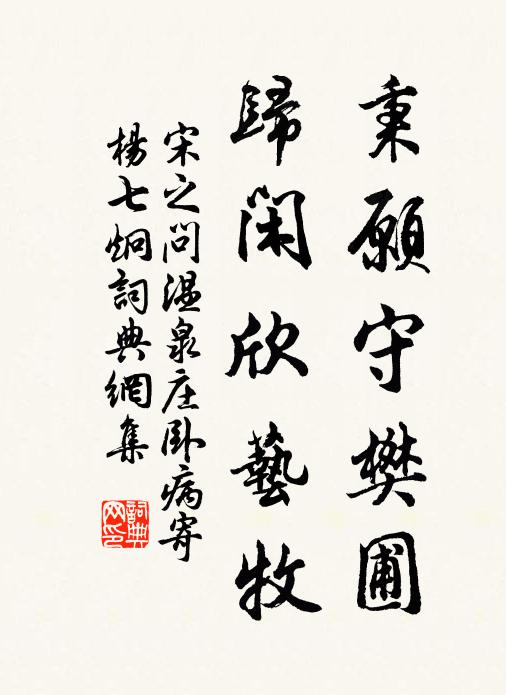 秉願守樊圃
歸閑欣藝牧
宋之问温泉庄卧病寄
楊七炯詞典網集
詞典
网印